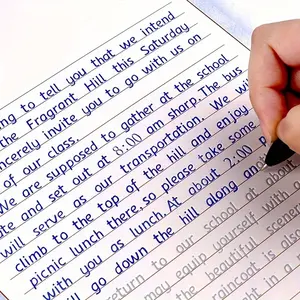 ng to tell you that we intend
the Fragrant Hill this Saturday
ncerely invite you to go with us on
of our class.
We are supposed to gather at the school
te and set out at 8:00 am sharp. The bus
will serve as our transportation. We wi
climb to the top of the hill and enjoy
picnic lunch there, so please take some
with you as lunch. At about 2:00 p
ll go down the hill along an
return to our school at about
may equip yourself with
the beautiful scene
raincoat is also
ht in a